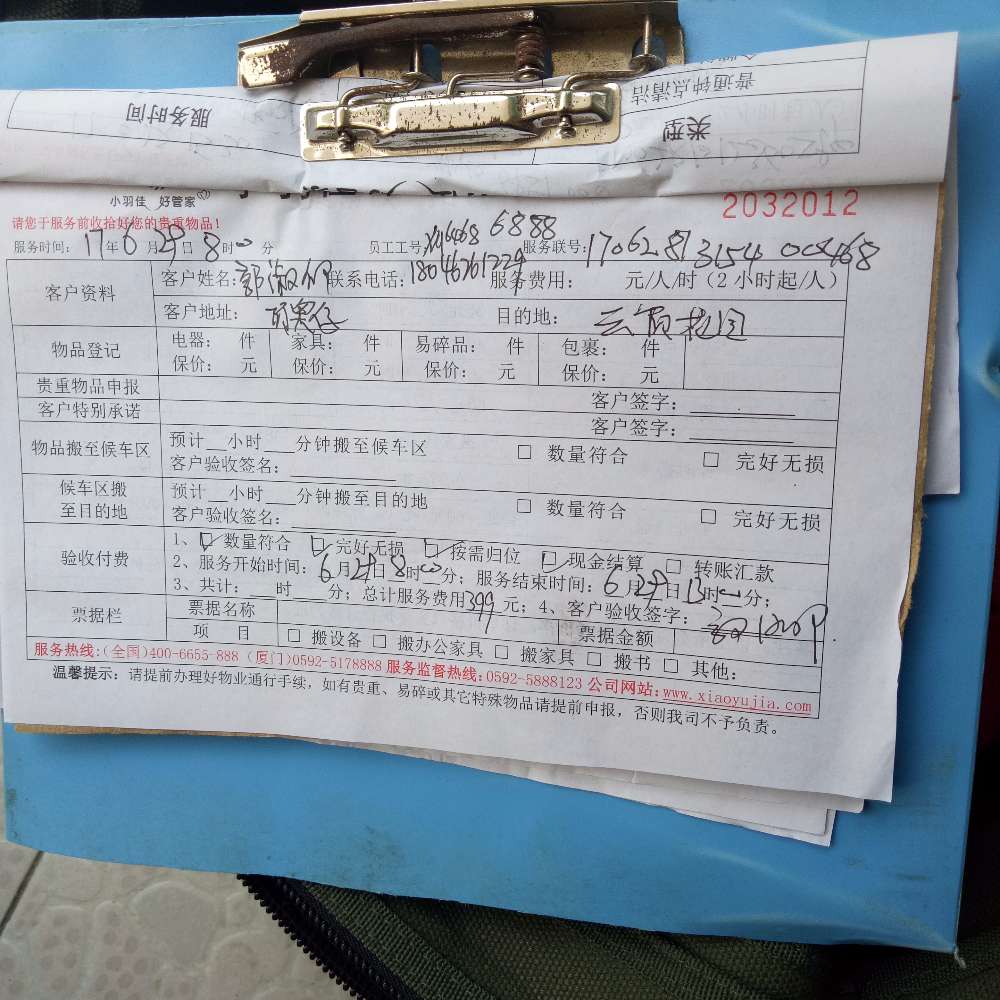 普通钟点清洁
服务时间 类型
小羽佳 好管家
2032012
请您于服务前收拾好您的贵重物品!
服务时间: 17年6月29日8时00分 员工工号: 6888 服务联号: 170628 004468
客户资料 客户姓名: 联系电话: 18046261229 服务费用: 元/人/时(2小时起/人)
客户地址: 目的地: 云顶花园
物品登记 电器: 件 家具: 件 易碎品: 件 包裹: 件
保价: 元 保价: 元 保价: 元 保价: 元
贵重物品申报 客户签字:
客户特别承诺 客户签字:
物品搬至候车区 预计__小时___分钟搬至候车区 □ 数量符合 □ 完好无损
客户验收签名:
候车区搬至目的地 预计__小时___分钟搬至目的地 □ 数量符合 □ 完好无损
客户验收签名:
验收付费 1、☑数量符合 ☑完好无损 ☑按需归位 ☑现金结算 □ 转账汇款
2、服务开始时间: 6月29日8时00分; 服务结束时间: 6月29日13时00分;
3、共计: 时 分; 总计服务费用399元; 4、客户验收签字:
票据栏 票据名称 票据金额
项 目 □ 搬设备 □ 搬办公家具 □ 搬家具 □ 搬书 □ 其他:
服务热线:(全国)400-6655-888 (厦门)0592-5178888 服务监督热线:0592-5888123 公司网站:www.xiaoyujia.com
温馨提示: 请提前办理好物业通行手续, 如有贵重、易碎或其它特殊物品请提前申报, 否则我司不予负责。